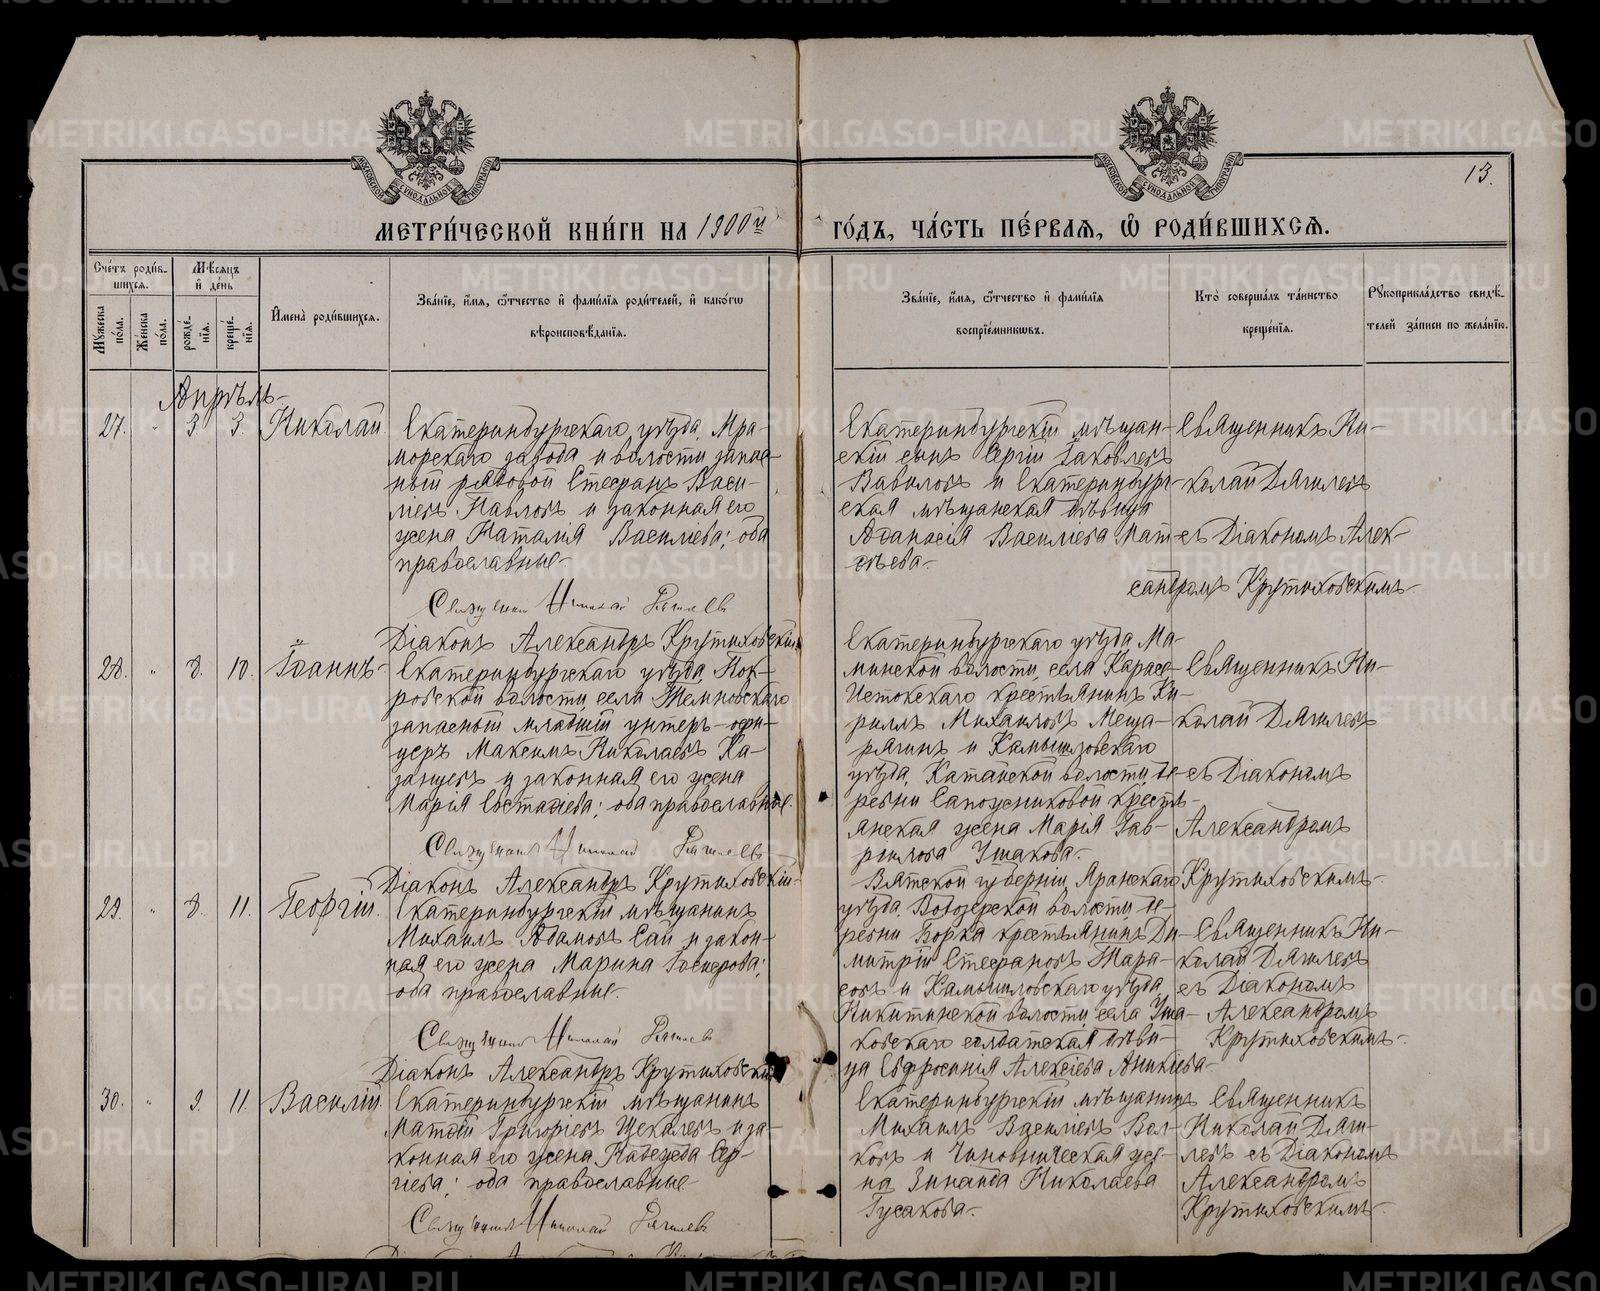 METRIKI.GASO-URAL.RU
МОСКОВСКОЙ СУНОДАЛЬНОЙ ТИПОГРАФІИ
МОСКОВСКОЙ СУНОДАЛЬНОЙ ТИПОГРАФІИ
13.
МЕТРИ́ЧЕСКОЙ КНИ́ГИ НА 1900й ГО́ДЪ, ЧА́СТЬ ПЕ́РВАЯ, Ѡ РОДИ́ВШИХСЯ.
Сче́тъ роди́в-
шихся.
Мѣ́сяцъ
и҆ де́нь
Му́жеска по́ла.
Же́нска по́ла.
рожде́нїя.
креще́нїя.
И҆мена̀ роди́вшихся.
Зва́нїе, и҆́мя, ѻ҆́тчество и҆ фами́лїя роди́телей, и҆ како́гѡ
вѣроисповѣ́данїя.
Зва́нїе, и҆́мя, ѻ҆́тчество и҆ фами́лїя
воспрїе́мникѡвъ.
Кто̀ соверша́лъ та́инство
креще́нїя.
Рꙋкоприкла́дство свидѣ́-
телей за́писи по жела́нїю.
Апрѣль
27. " 3. 3. Николай
Екатеринбургскаго уѣзда, Мра-
морскаго завода и волости запас-
ный рядовой Стефанъ Васи-
льевъ Павловъ и законная его
жена Наталія Васильева; оба
православные.
Священникъ Николай Дягилевъ
Діаконъ Александръ Крутиховскій
Екатеринбургскій мѣщан-
скій сынъ Сергій Іаковлевъ
Вавиловъ и Екатеринбург-
ская мѣщанская дѣвица
Аѳанасія Васильева Мат-
ѳѣева.
Священникъ Ни-
колай Дягилевъ
съ Діакономъ Алек-
сандромъ Крутиховскимъ.
28. " 8. 10. Іоаннъ
Екатеринбургскаго уѣзда, Пок-
ровской волости, села Темновскаго
запасный младшій унтеръ-офи-
церъ Максимъ Николаевъ Ка-
занцевъ и законная его жена
Марія Евстафіева; оба православные.
Священникъ Николай Дягилевъ
Діаконъ Александръ Крутиховскій
Екатеринбургскаго уѣзда, Ма-
минской волости, села Карасе-
Истокскаго крестьянинъ Ки-
риллъ Михаиловъ Меща-
рягинъ и Камышловскаго
уѣзда, Катайской волости, де-
ревни Сапожниковой кресть-
янская жена Марія Гав-
рилова Ушакова.
Священникъ Ни-
колай Дягилевъ
съ Діакономъ
Александромъ
Крутиховскимъ.
29. " 8. 11. Георгій.
Екатеринбургскій мѣщанинъ
Михаилъ Адамовъ Сай и закон-
ная его жена Марина
оба православные.
Священникъ Николай Дягилевъ
Діаконъ Александръ Крутиховскій
Вятской губерніи, Яранскаго
уѣзда, волости, де-
ревни Борка крестьянинъ Ди-
митрій Стефановъ Тара-
совъ и Камышловскаго уѣзда,
Никитинской волости, села Уша-
ковскаго солдатская дѣви-
ца Евфросинія Алексіева Аникіева
Священникъ Ни-
колай Дягилевъ
съ Діакономъ
Александромъ
Крутиховскимъ.
30. " 9. 11. Василій
Екатеринбургскій мѣщанинъ
Матѳій Григорьевъ Щекалевъ и за-
конная его жена, Надежда Сер-
гіева; оба православные
Священникъ Николай Дягилевъ
Екатеринбургскій мѣщанинъ
Михаилъ Васильевъ Вол-
ковъ и Чиновническая же-
на Зинаида Николаева
Гусакова.
Священникъ
Николай Дяги-
левъ съ Діакономъ
Александромъ
Крутиховскимъ.